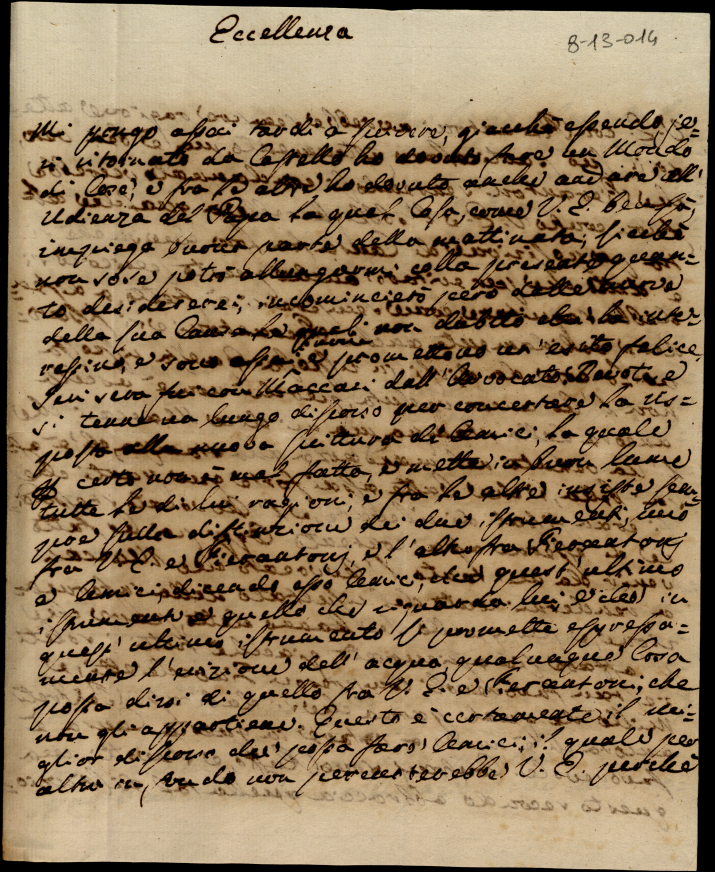 Eccellenza
8-13-014
Mi pongo assai tardi a scrivere, giacchè essendo je=
ri ritornato da Castello ho dovuto fare un Mondo
di Cose, e fra le altre ho dovuto anche andare all'
Udienza del Papa la qual Cosa, come V. E. ben sà,
impiega buona parte della mattinata, sicchè
non so se potrò allungarmi colla presente quan=
to desidererei, incomincierò però dalle nuove
della sua Causa le quali non dubito che la inte=
ressino, e sono assai buone e promettono un' esito felice,
Jeri sera fui con Maccari dall' Avvocato e
si tenne un lungo discorso per concertare la ris=
posta alla nuova scrittura di Cenci, la quale
certo non è mal fatta, e mette in buon lume
tutte le di lui ragioni, e fra le altre insiste sem=
pre sulla distinzione dei due istrumenti, uno
fra V. E. e Pierantonj, e l'altro fra Pierantonj
e Cenci, dicendo esso Cenci, che quest' ultimo
istrumento è quello che riguarda lui, e che in
quest' ultimo istrumento si promette espressa=
mente l'evizione dell' acqua, qualunque Cosa
possa dirsi di quello fra V. E. e Pierantonj, che
non gli appartiene. Questo è certamente il mi=
glior discorso che possa farsi Cenci, il quale per
altro non V. E. perchè